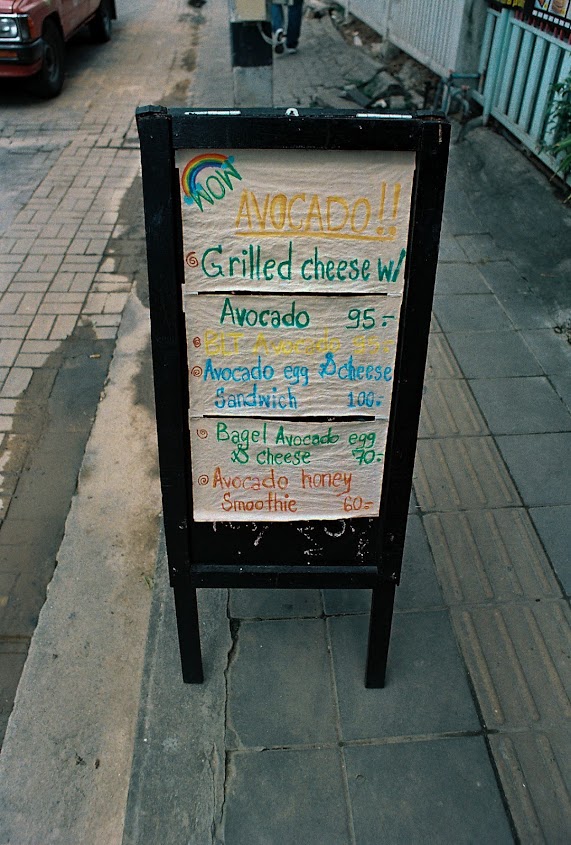 WOW
AVOCADO!!
Grilled cheese w/
Avocado 95.-
BLT Avocado 95.-
Avocado egg & cheese
Sandwich 100.-
Bagel Avocado egg
& cheese 70.-
Avocado honey
Smoothie 60.-